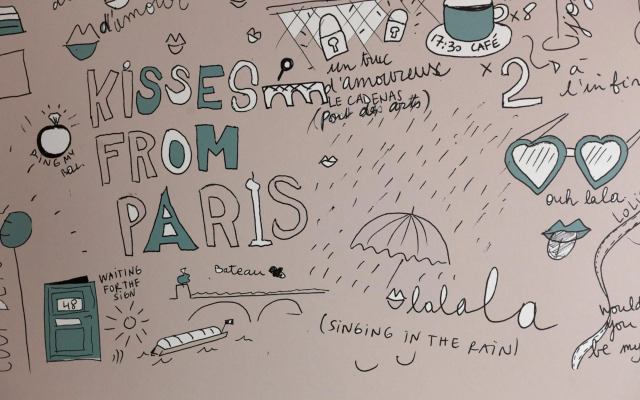 d'amour
x 8
17:30 CAFÉ
un truc
d'amoureuse
LE CADENAS
(Pont des arts)
x 2
à
l'infin
KISSES
FROM
PARIS
RING MY
BELL
ouh lala
Bateau
WAITING
FOR THE
SIGN
48
lalala
(SINGING IN THE RAIN)
would
you
be my